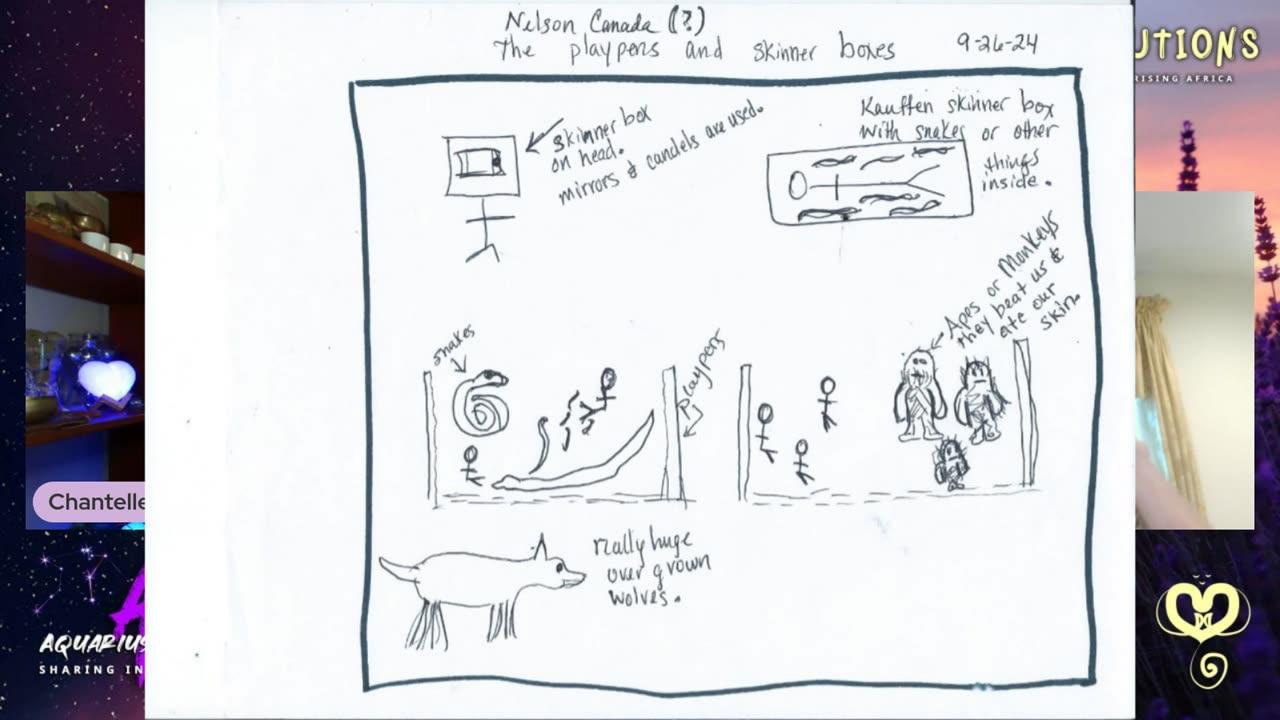 Nelson Canada (?)
The playpens and skinner boxes 9-26-24
skinner box
on head.
mirrors & candels are used.
Kauffen skinner box
with snakes or other
things
inside.
snakes
playpens
Apes or Monkeys
they beat us &
ate our
skin.
really huge
over grown
wolves.
Chantelle
AQUARIUS
SHARING IN
UTIONS
RISING AFRICA